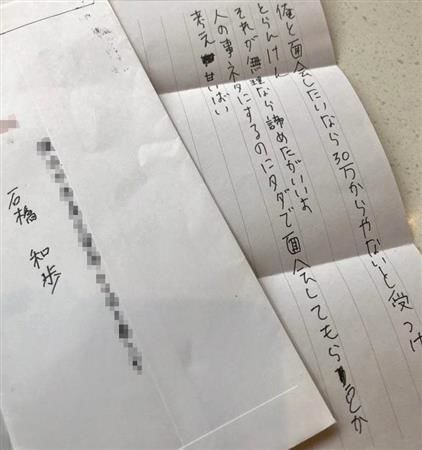 俺と面会したいなら30万からやないと受つけ
とらんけん
それが無理なら諦めたがいいよ
人の事ネタにするのにタダで面会して
考え甘いばい
石橋 和歩